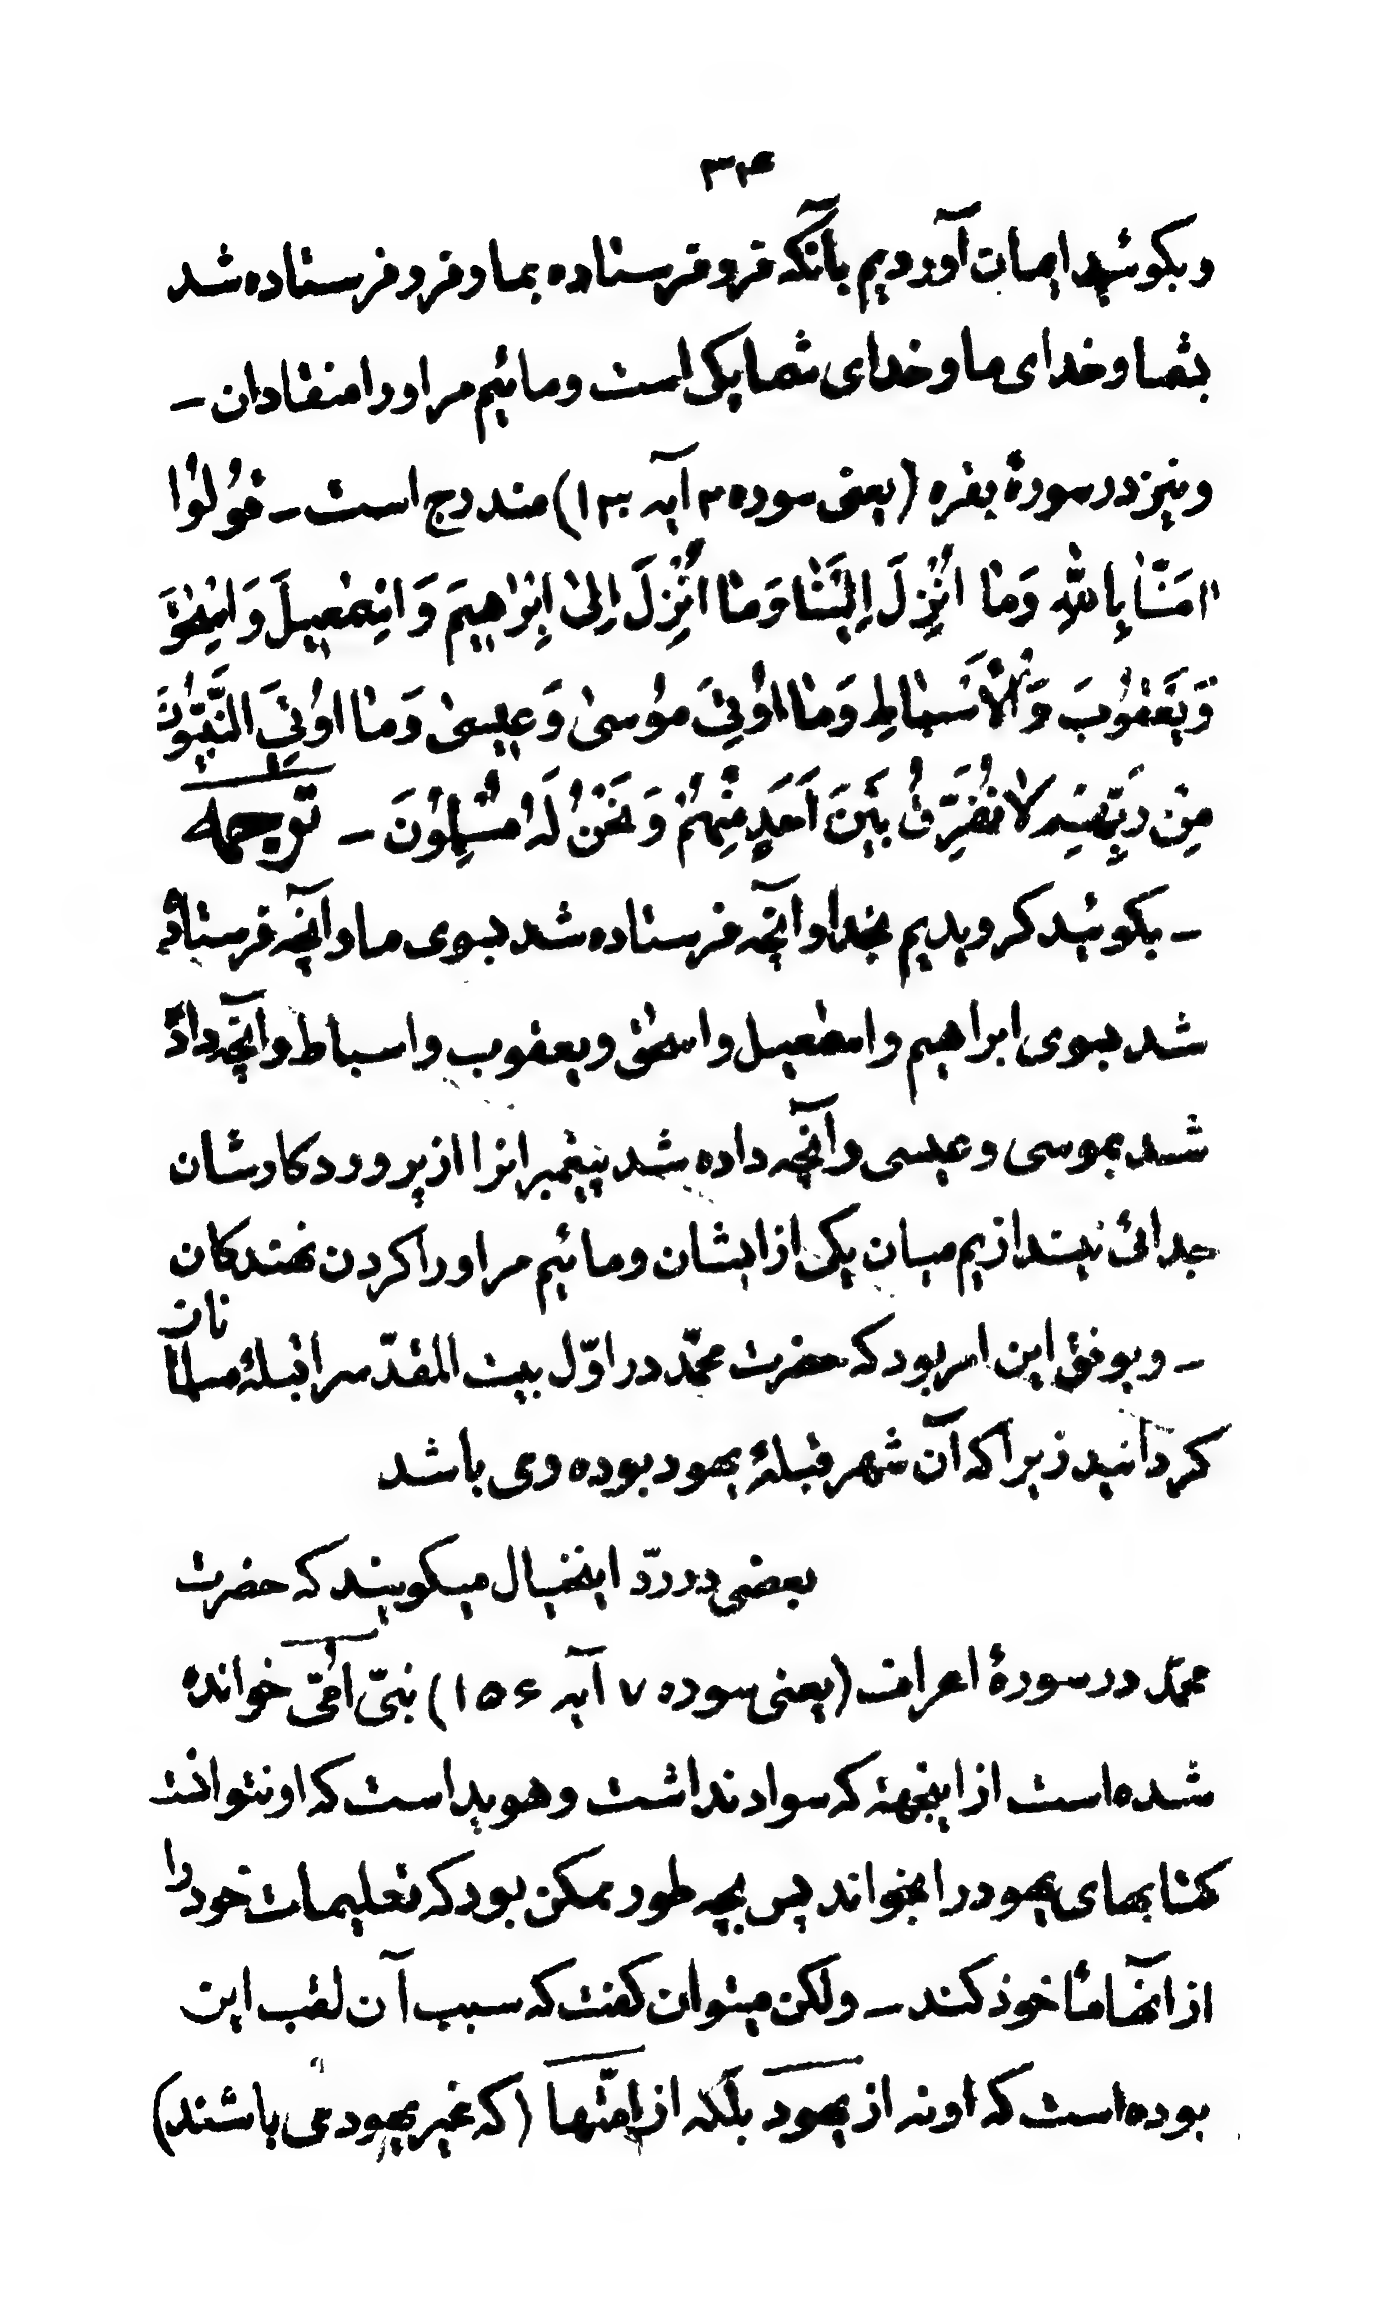 ۳۴
وبگوئید ایمان آوردیم بآنکه فرو فرستاده بما و فرو فرستاده شد
بشما و خدای ما و خدای شما یکی است و مائیم مر او را منقادان –
ونیز در سورهٔ بقره (یعنی سوره ۲ آیه ۱۳۰) مندرج است – قُولُوْا
اٰمَنَّا بِاللّٰهِ وَمَا اُنْزِلَ اِلَيْنَا وَمَا اُنْزِلَ اِلىٰ اِبْرٰاهِيمَ وَاِسْمٰعِيلَ وَاِسْحٰقَ
وَيَعْقُوبَ وَالْاَسْبَاطِ وَمَا اُوتِيَ مُوسىٰ وَعِيسىٰ وَمَا اُوتِيَ النَّبِيُّونَ
مِنْ رَبِّهِمْ لَا نُفَرِّقُ بَيْنَ اَحَدٍ مِنْهُمْ وَنَحْنُ لَهُ مُسْلِمُونَ – ترجمه
– بگوئید گرویدیم بخدا و آنچه فرستاده شد بسوی ما و آنچه فرستاده
شد بسوی ابراهیم و اسمٰعیل و اسحٰق و یعقوب و اسباط و آنچه داده
شد بموسی و عیسی و آنچه داده شد پیغمبرانرا از پروردگارشان
جدائی نیندازیم میان یکی از ایشان و مائیم مر او را گردن نهندگان
– و بوفق این امر بود که حضرت محمّد در اوّل بیت المقدّسرا قبلهٔ مسلمانان
گردانید زیرا که آن شهر قبلهٔ یهود بوده و می باشد
بعضی در ردّ اینخیال میگویند که حضرت
محمّد در سورهٔ اعراف (یعنی سوره ۷ آیه ۱۵۶) نبیّ اُمّی خوانده
شده است از اینجهة که سواد نداشت و هویدا است که او نتوانست
کتابهای یهود را بخواند پس بچه طور ممکن بود که تعلیمات خود را
از آنها مأخوذ کند – ولکن میتوان گفت که سبب آن لقب این
بوده است که او نه از یهود بلکه از امّتها (که غیر یهود می باشند)